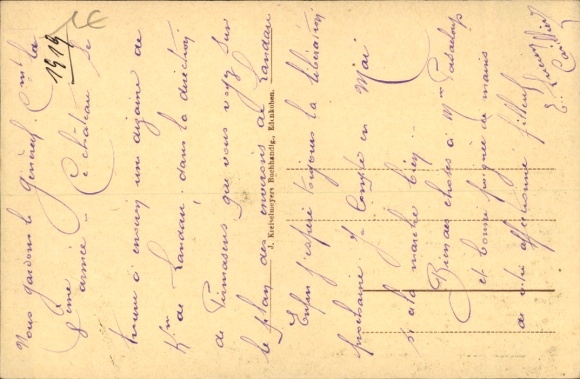 Nous gardons le Général Cmt la
8ème armée. Ce château se
trouve à environ une dizaine de
Km de Landau, dans la direction
de Pirmasens que vous voyez sur
le plan des environs de Landau
Enfin j'espère toujours la libération
prochaine. Je compte en Mai
si cela marche bien.
Bien des choses à Mme
et bonne poignée de mains
de votre affectionné filleul
1919
J. Kreiselmeyers Buchhandlg., Edenkoben.